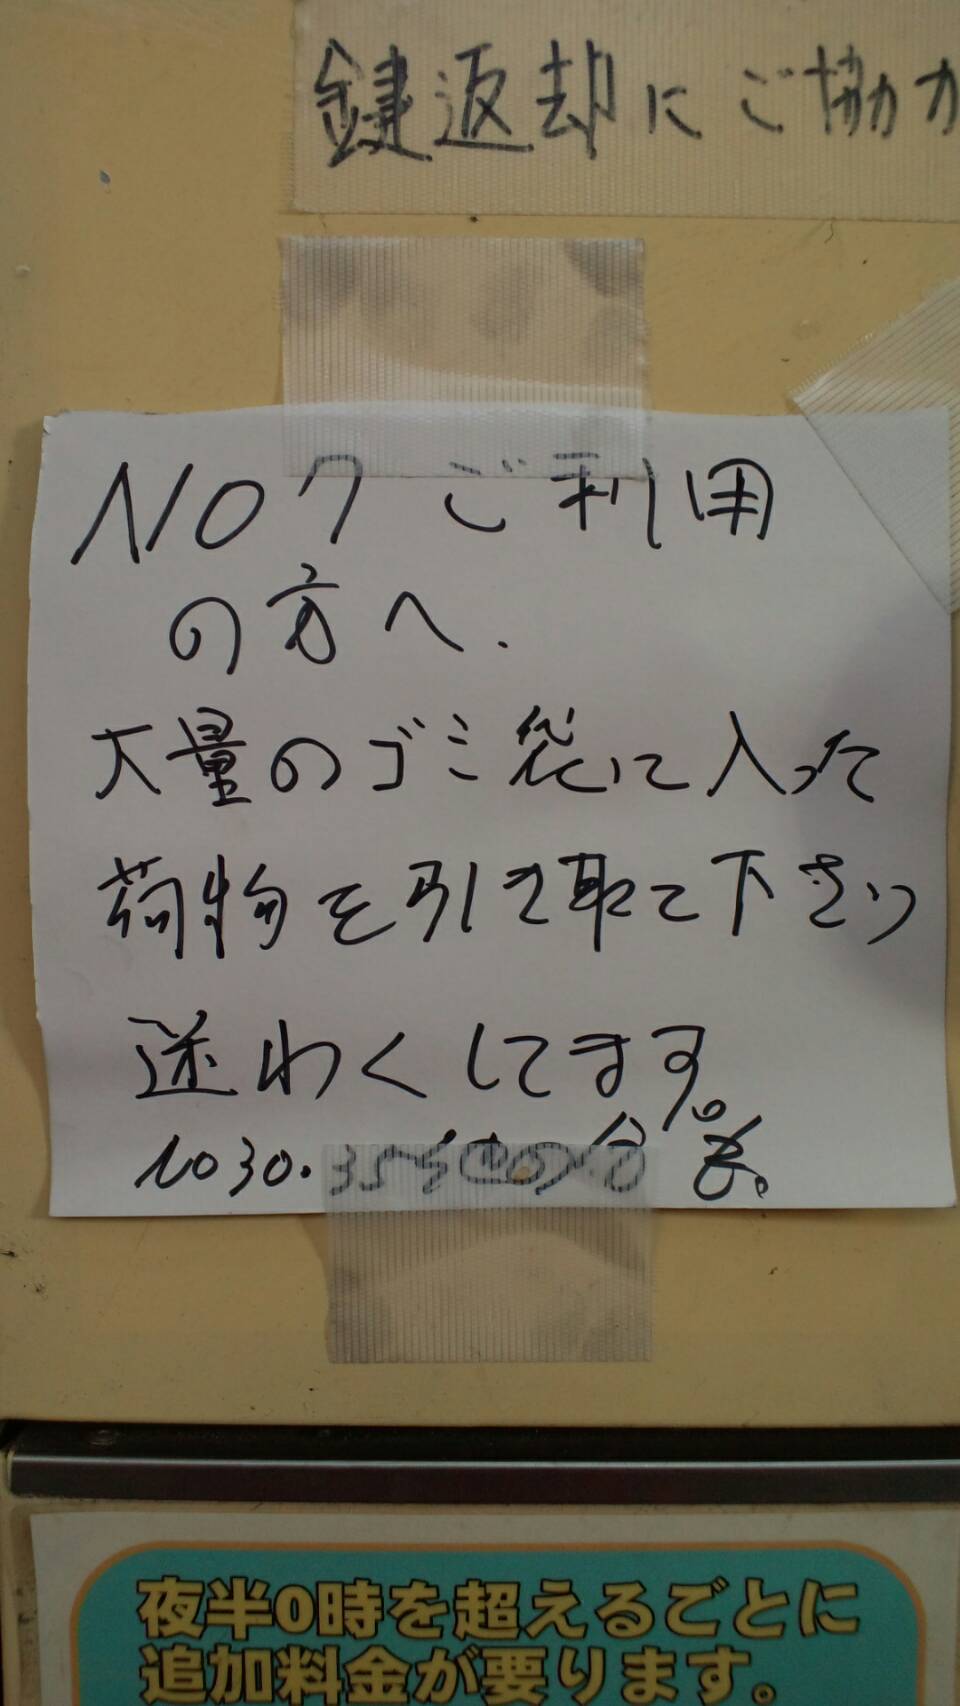 鍵返却にご協力
NO7 ご利用
の方へ.
大量のゴミ袋に入った
荷物を引き取て下さい
迷わくしてます。
NO30.35
夜半0時を超えるごとに
追加料金が要ります。